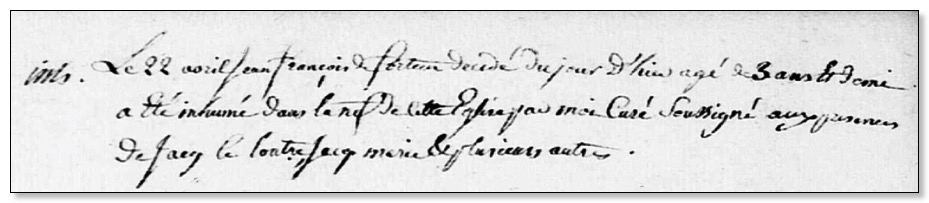 inh. Le 22 avril Jean françois de fortun decedé du jour D'hier agé de 3 ans Et demi
a Eté inhumé dans la nef De cette Eglise par moi Curé Soussigné aux presences
De Jacq le Contre, Jacq marie & plusieurs autres.